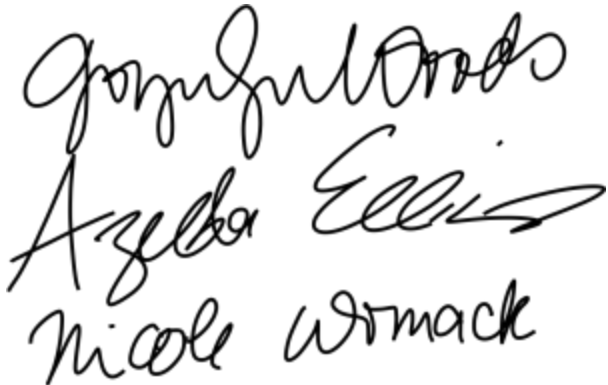 Woods
Azelba Ellis
Nicole Womack